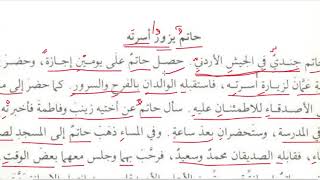 حاتم يزور أسرته
حاتم جنديٌّ في الجيشِ الأردنيِّ. حصل حاتمُ على يومينِ إجازةً، وحضرَ
عمّانَ لزيارةِ أسرتِه، فاستقبله الوالدانِ بالفرحِ والسرورِ. كما حضرَ إلى
الأصدقاءِ للاطمئنانِ عليه. سأل حاتمٌ عن أختيهِ زينبَ وفاطمةَ فأخبرتْه
في المدرسةِ، وستحضرانِ بعدَ ساعةٍ. وفي المساءِ ذهبَ حاتمٌ إلى المسجدِ
فقابله الصديقانِ محمدٌ وسعيدٌ، فرحَّبَ بهما وجلس معهما بعضَ الوقتِ